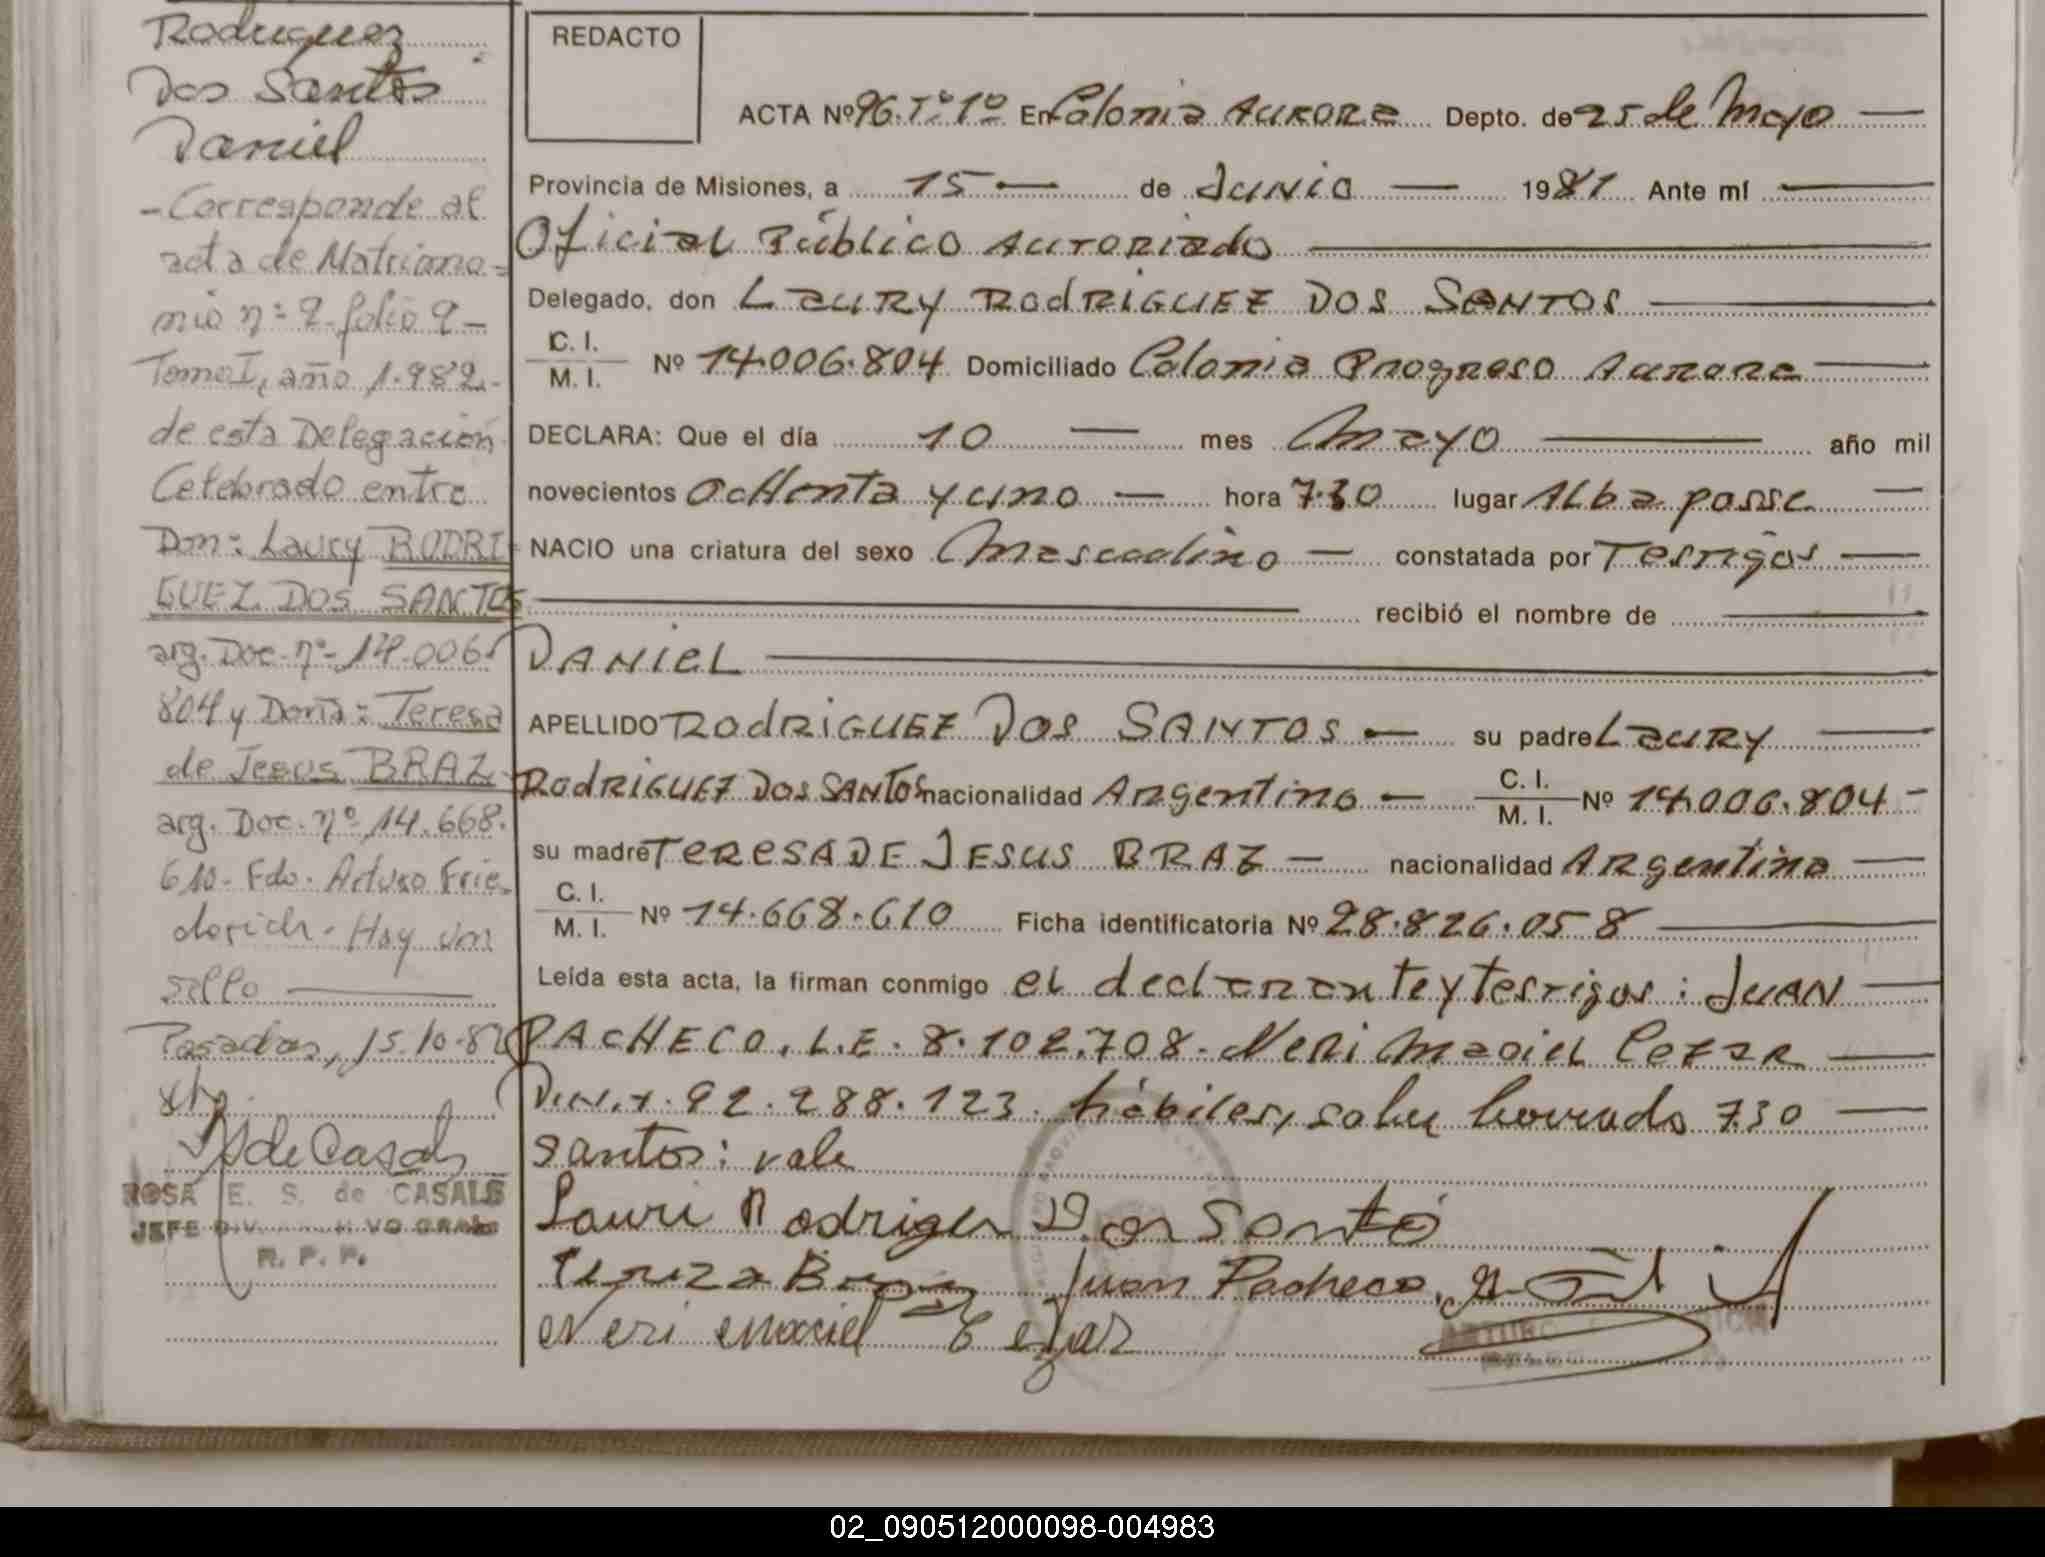 Rodriguez
Dos Santos
Daniel
- Corresponde al
acta de Matrimo-
nio nº 2 folio 2-
Tomo I, año 1.982.-
de esta Delegación
Celebrado entre
Don: Laury RODRI-
GUEZ DOS SANTOS
arg. Doc. nº 14.006.
804 y Doña: Teresa
de Jesus BRAZ-
arg. Doc. nº 14.668.
610- Fdo. Arturo Frie-
derich. Hay un
sello
Posadas, 15.10.82
de Casals
ROSA E. S. de CASALS
JEFE DIV. VO GRAL
R. P. P.
REDACTO
ACTA Nº 96. Tº 1º En Colonia Aurora Depto. de 25 de Mayo
Provincia de Misiones, a 15 de Junio 1981 Ante mí
Oficial Público Autoriado
Delegado, don Laury Rodriguez Dos Santos
C. I. / M. I. Nº 14.006.804 Domiciliado Colonia Progreso Aurora
DECLARA: Que el día 10 mes Mayo año mil
novecientos ocHenta y uno hora 7.30 lugar Alba posse
NACIO una criatura del sexo Masculino constatada por Testigos
recibió el nombre de
DANIEL
APELLIDO RodRiGUEZ Dos SANTOS su padre Laury
RodRiGUEZ Dos SANTos nacionalidad Argentino C. I. / M. I. Nº 14.006.804
su madre TERESA DE JESUS BRAZ nacionalidad Argentina
C. I. / M. I. Nº 14.668.610 Ficha identificatoria Nº 28.826.058
Leída esta acta, la firman conmigo el declarante y testigos: JUAN
PACHECO. L.E. 8.102.708. Neri Maciel Cezar
D.N.I. 92.288.123. hábiles, sobre borrado 7.30
santos: vale
Lauri Rodriguez Dos Santo
Tereza Juan Pacheco
Neri maciel Cezar
ARTURO
02_090512000098-004983